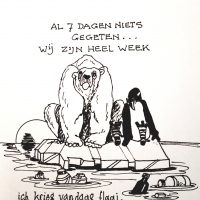 AL 7 DAGEN NIETS
GEGETEN...
WIJ ZIJN HEEL WEEK
ich krieg vandage flaai.